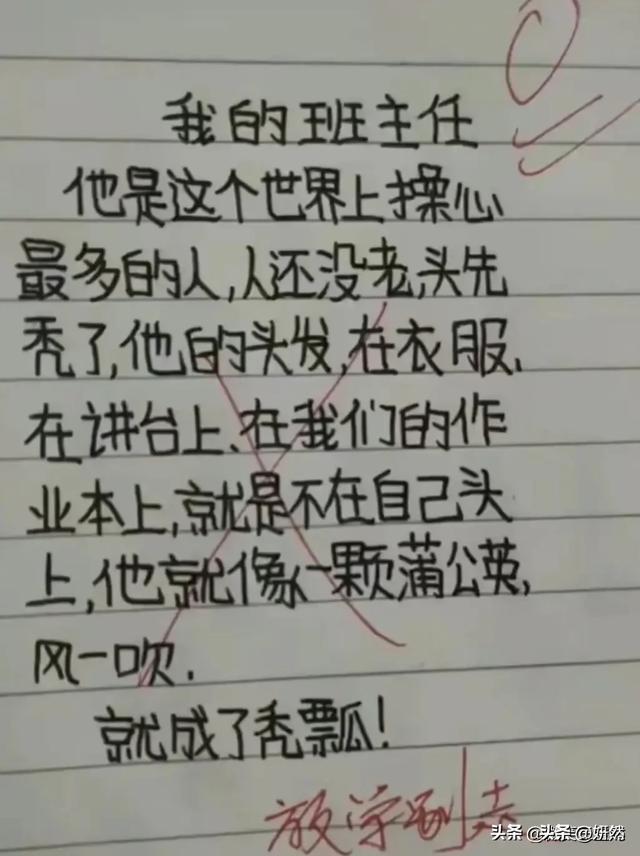 我的班主任
他是这个世界上操心
最多的人,人还没老,头先
秃了,他的头发,在衣服、
在讲台上、在我们的作
业本上,就是不在自己头
上,他就像一颗蒲公英,
风一吹.
就成了秃瓢!
放学别走
头条 @头条@妍然